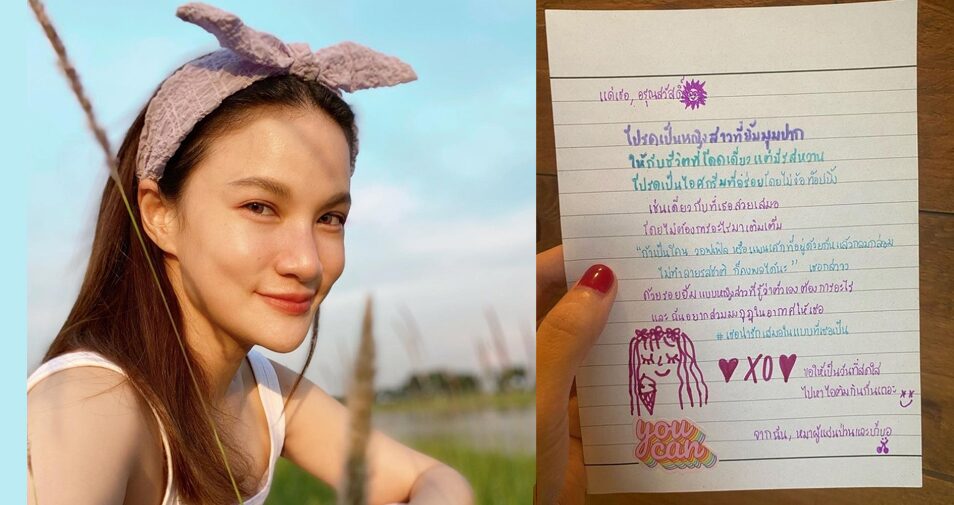 แด่เธอ, อรุณสวัสดิ์
โปรดเป็นหญิงสาวที่ยิ้มมุมปาก
ให้กับชีวิตที่โดดเดี่ยวแต่มีรสหวาน
โปรดเป็นไอศกรีมที่อร่อยโดยไม่ง้อท๊อปปิ้ง
เช่นเดียวกับที่เธอสวยเสมอ
โดยไม่ต้องการอะไรมาเติมเต็ม
"ถ้าเป็นโคน วอฟเฟิล หรือแพนเค้กที่อยู่ด้วยกันแล้วกลมกล่อม
ไม่ทำลายรสชาติ ก็คงพอได้นะ" เธอกล่าว
ด้วยรอยยิ้มแบบหญิงสาวที่รู้ว่าตัวเองต้องการอะไร
และฉันอยากสวมมงกุฎในอากาศให้เธอ
#เธอน่ารักเสมอในแบบที่เธอเป็น
♥ XO ♥
ขอให้เป็นวันที่สดใส
ไปหาไอติมกินกันเถอะ
you
can
จากฉัน,